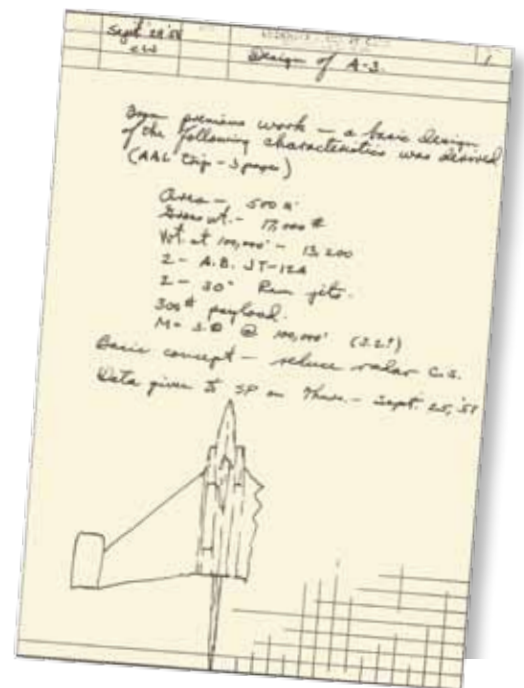 Sept 28 '58
Design of A-3.
1
From previous work — a basic design
of the following characteristics was derived
(AAL trip — 3 pages)
Area — 500 □'
Gross wt. — 17,000 #
Wt. at 100,000' — 13,200
2 — A.B. JT-12A
2 — 30" Ram jets.
300# payload.
M = 3.0 @ 100,000' (3.2?)
Basic concept — reduce radar C.S.
Data given to SP on Thurs. — Sept. 25, '58